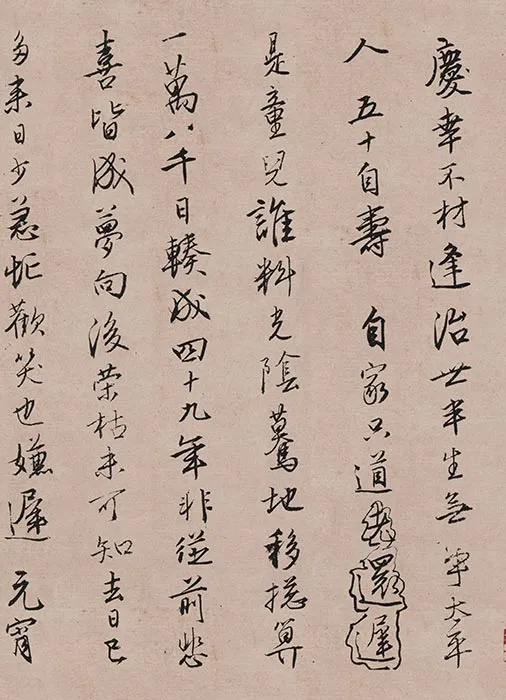 慶幸不材逢治世半生無事太平
人 五十自壽 自家只道老還遲
是童兒誰料光陰驀地移摠算
一萬八千日輳成四十九年非從前悲
喜皆成夢向後荣枯未可知去日已
多来日少急忙歡笑也嫌遲 元宵